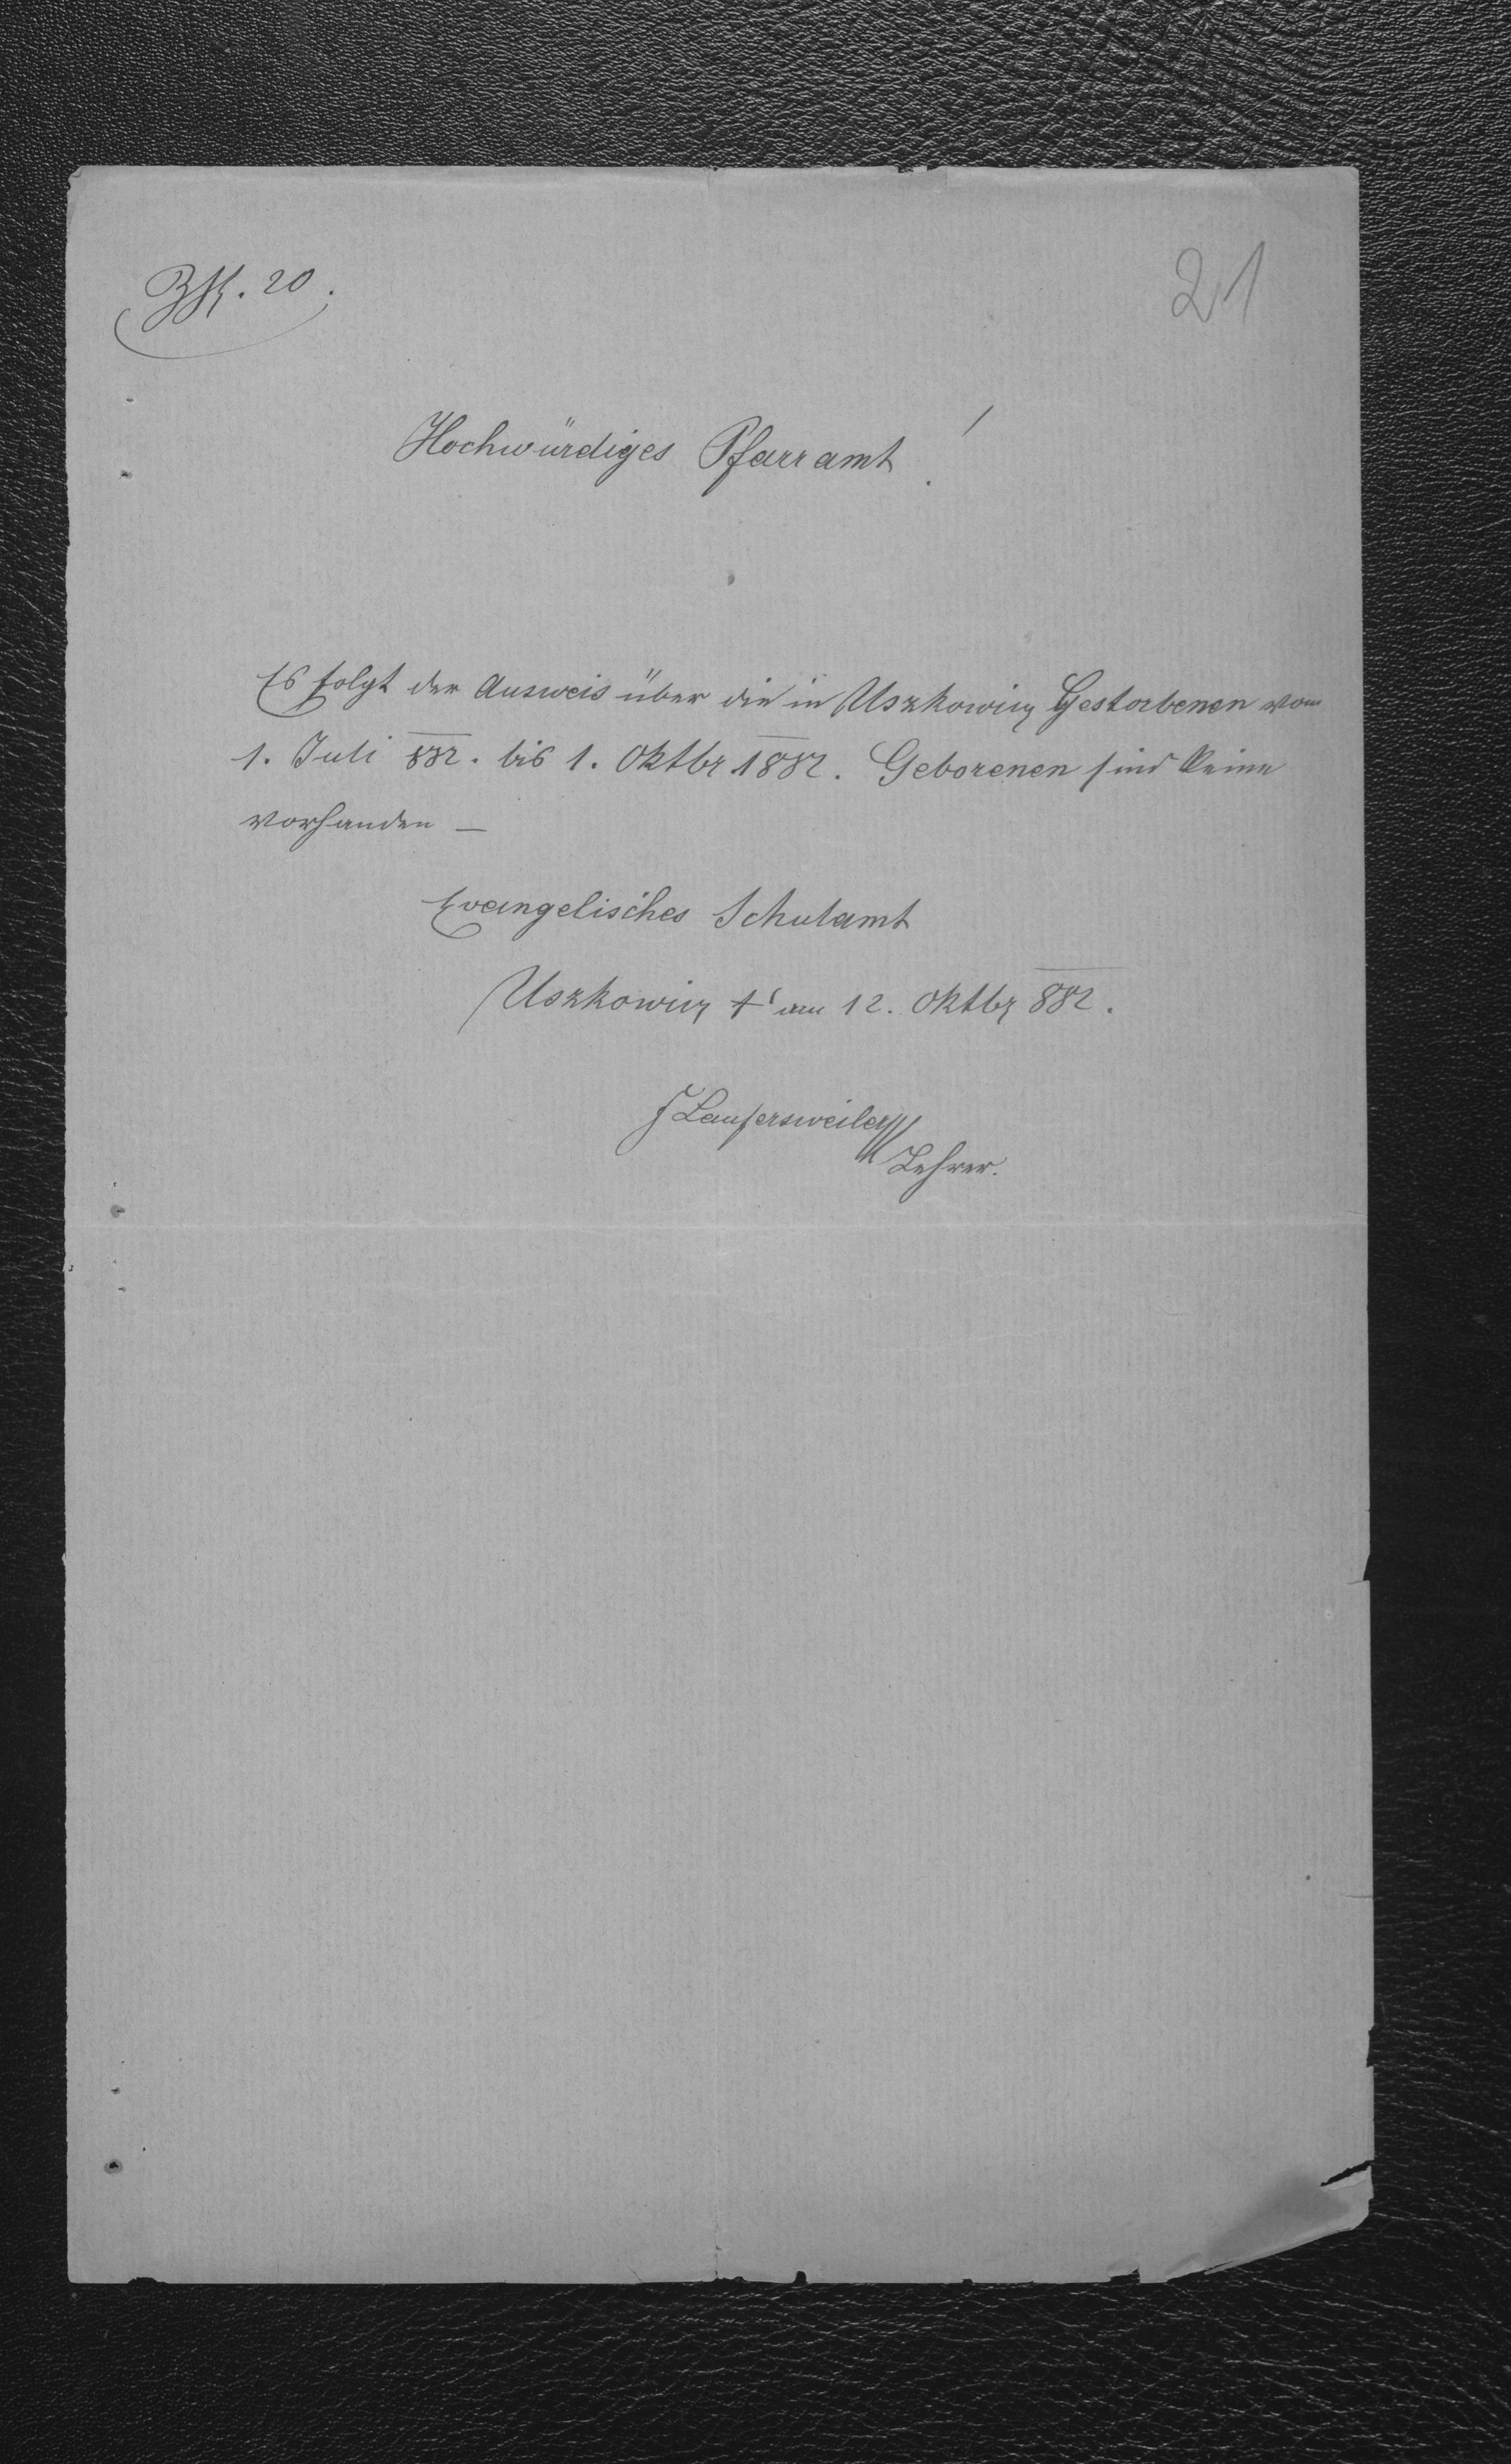 Zhl. 20.
21
Hochwürdiges Pfarramt!
Es folgt der Ausweis über die in Uszkowitz Gestorbenen vom
1. Juli 882. bis 1. Oktbr 1882. Geborenen sind keine
vorhanden –
Evangelisches Schulamt
Uszkowitz am 12. Oktbr 882.
J Laufersweiler
Lehrer.